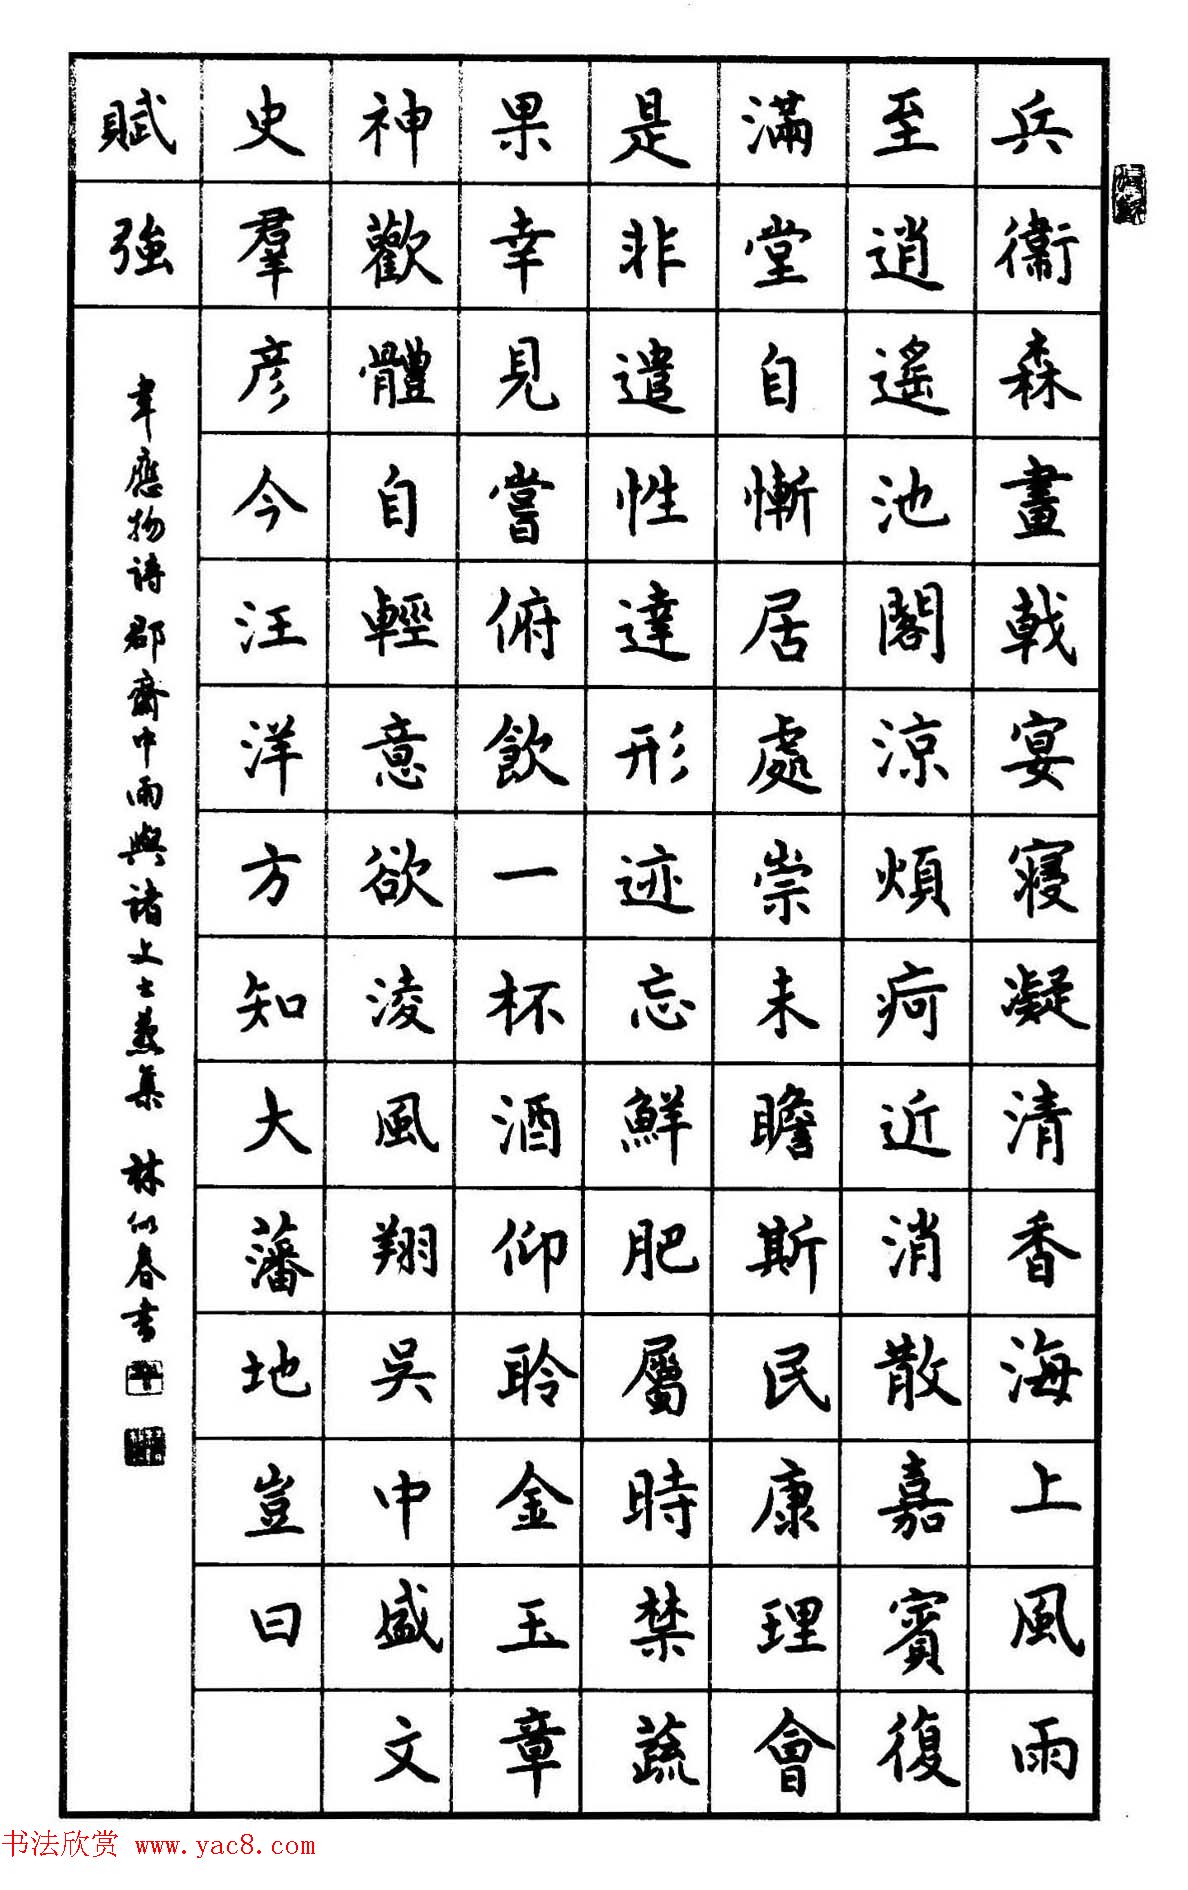 兵衞森畫戟宴寢凝清香海上風雨
至逍遙池閣涼煩疴近消散嘉賓復
滿堂自慚居處崇未瞻斯民康理會
是非遣性達形迹忘鮮肥屬時禁蔬
果幸見嘗俯飲一杯酒仰聆金玉章
神歡體自輕意欲淩風翔吳中盛文
史羣彥今汪洋方知大藩地豈曰
賦強
韋應物詩郡齋中雨與諸文士燕集 林似春書
书法欣赏 www.yac8.com